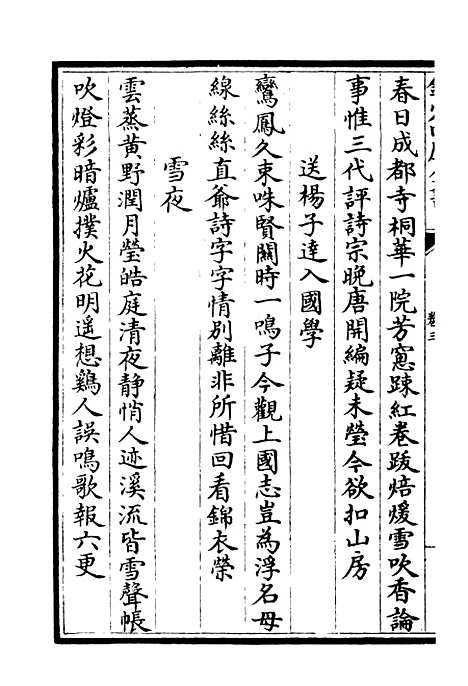 春日成都寺桐華一院芳窻踈紅卷跋焙煖雪吹香論
事惟三代評詩宗晚唐開編疑未瑩今欲扣山房
送楊子達入國學
鸞鳳久束咮賢關時一鳴子今觀上國志豈為浮名母
線絲絲直爺詩字字情别離非所惜回看錦衣榮
雪夜
雲蒸黄野潤月瑩皓庭清夜静悄人迹溪流皆雪聲帳
吹燈彩暗爐撲火花明遥想鷄人誤鳴歌報六更
卷三